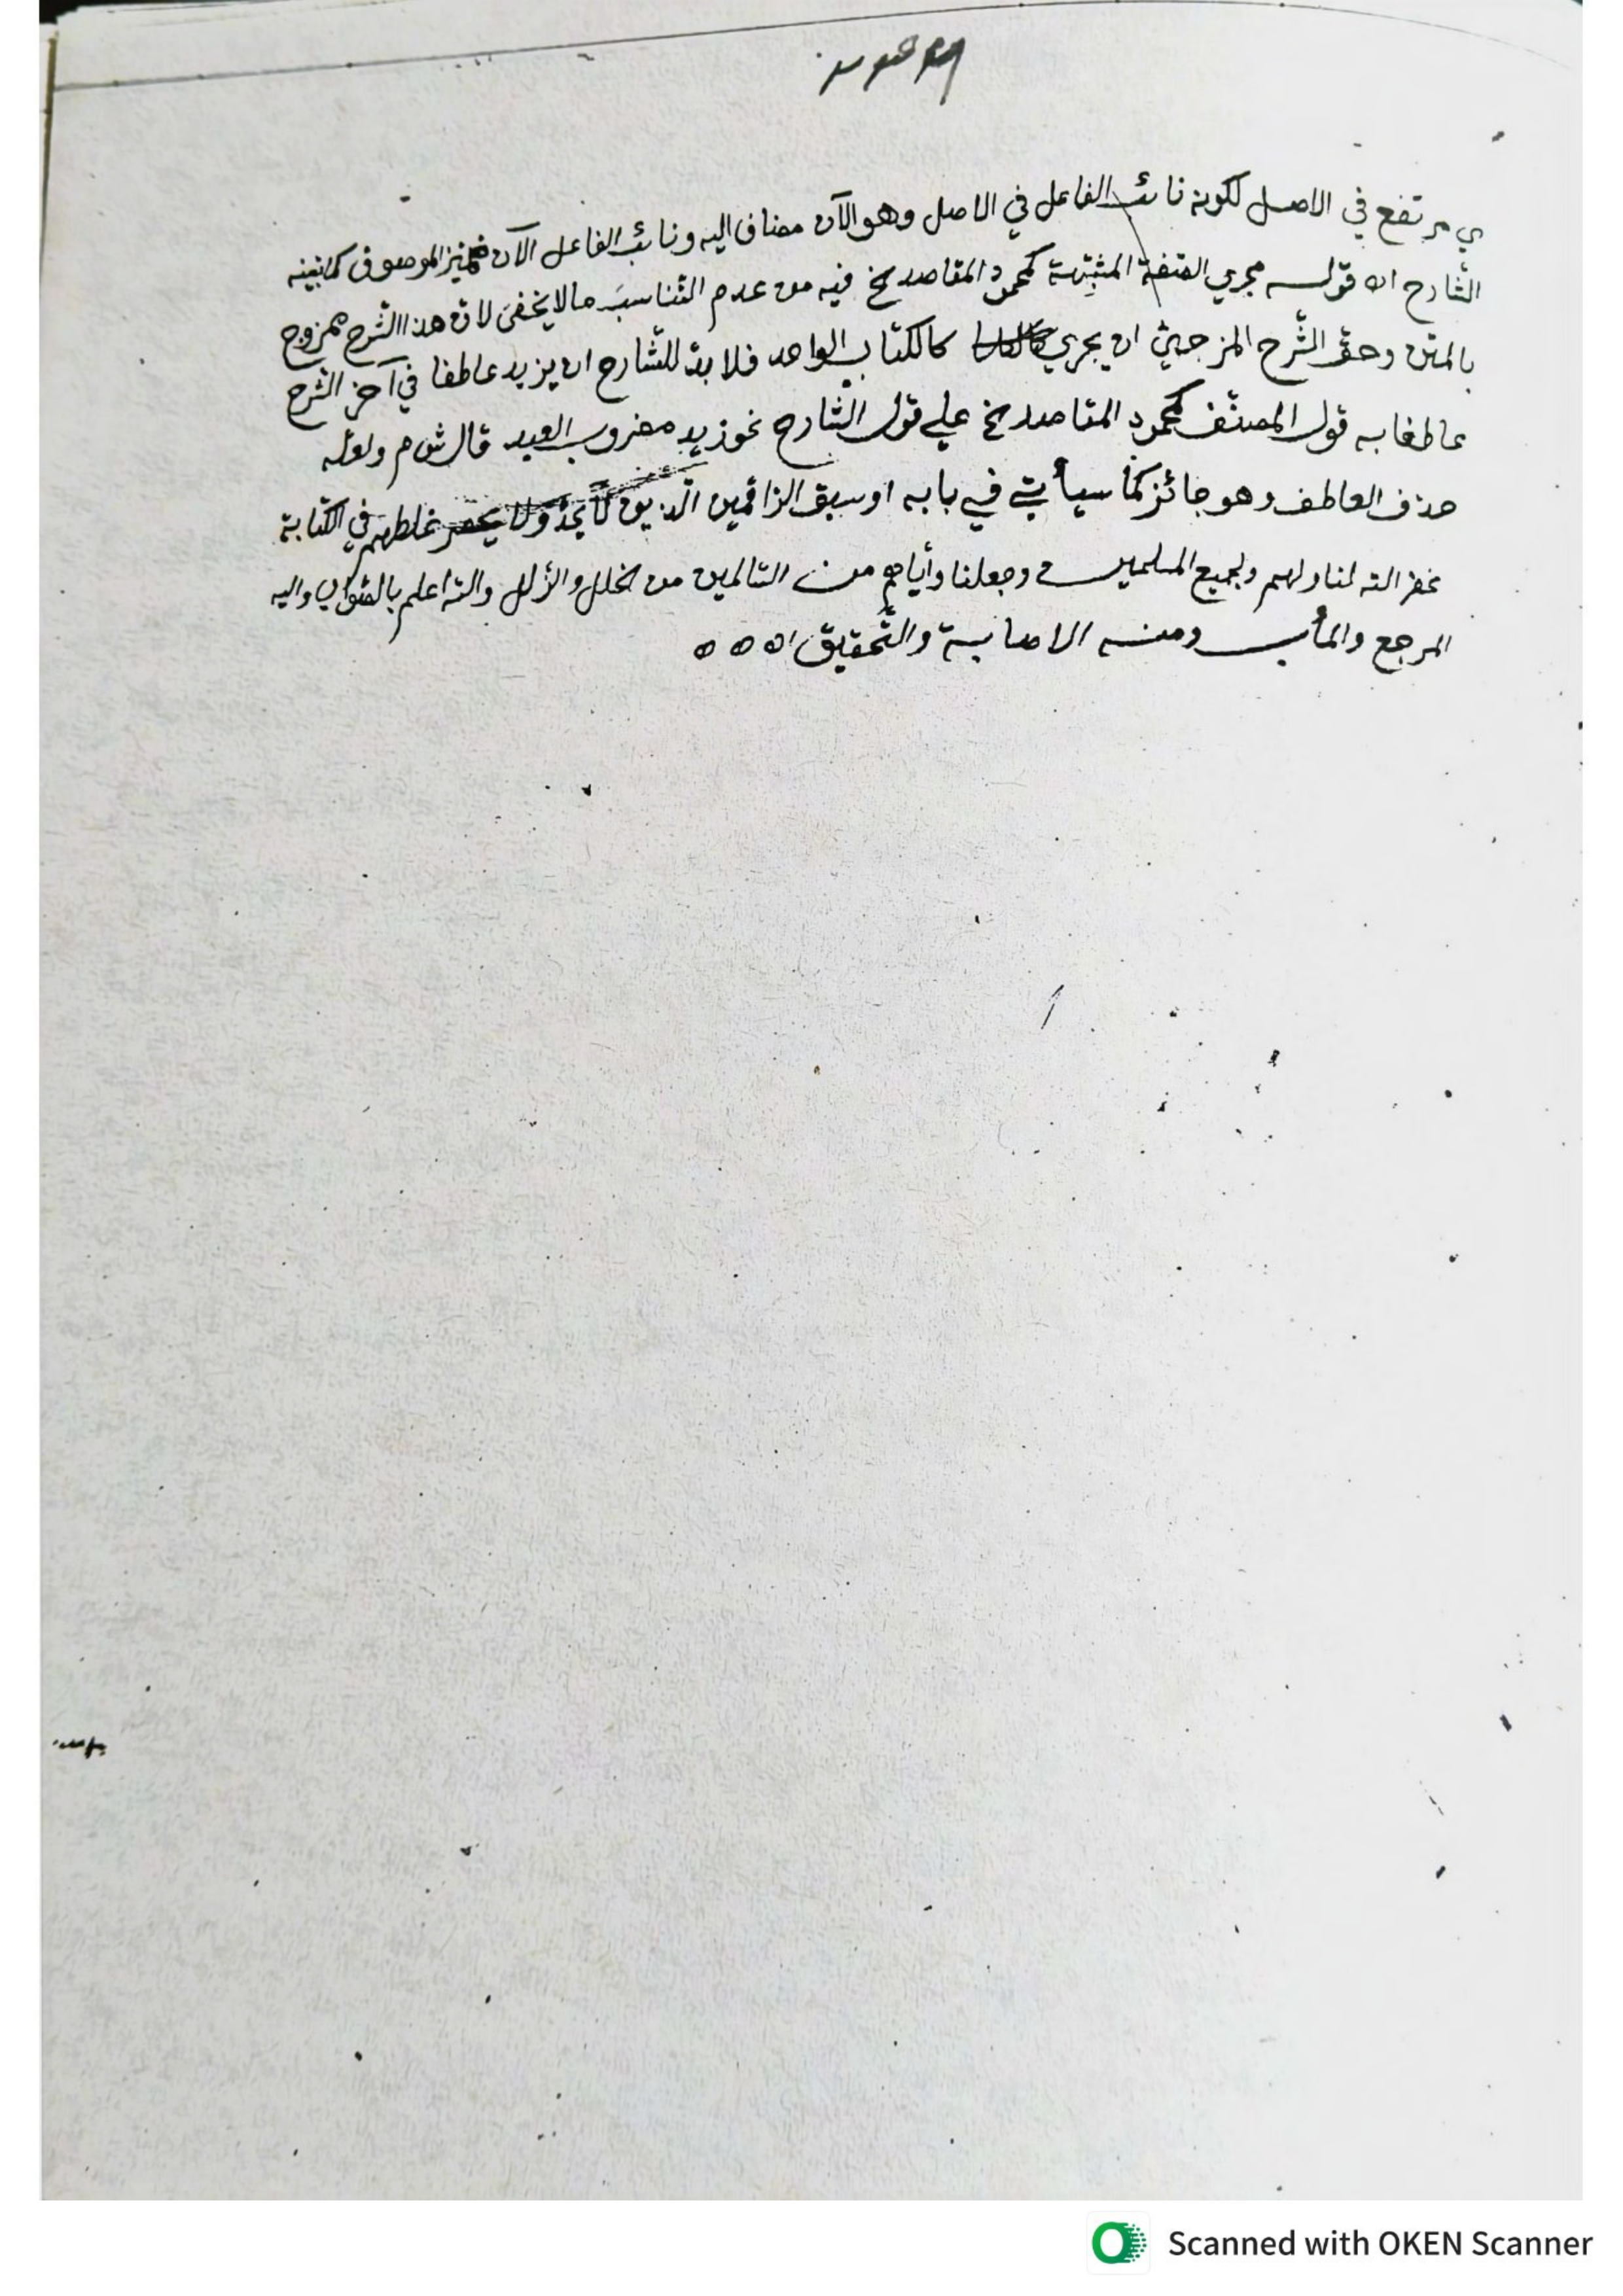 ي مرتفع في الاصل لكونه نائب الفاعل في الاصل وهو الآن مضاف اليه ونائب الفاعل الآن الموصوف كما بينه
الشارح اه قوله مجري الصفة المشبهة كمحمود المقاصد الخ فيه من عدم التناسب ما لا يخفى لان هذا الشرح ممزوج
بالمتن وحق الشرح المزجيّ ان يجري كالكتاب الواحد فلا بدّ للشارح ان يزيد عاطفا في آخر الشرح
عاطفا به قول المصنّف كمحمود المقاصد الخ علي قول الشارح نحو زيد مضروب العبد قال ش م ولعله
حذف العاطف وهو جائز كما سيأتي في بابه او سبق الراقمين الذين غلطهم في الكتابة
غفر الله لنا ولهم ولجميع المسلمين وجعلنا وأياهم من السالمين من الخلل والزلل والله اعلم بالصواب واليه
المرجع والمأب ومنه الاصابة والتحقيق اه ه ه
Scanned with OKEN Scanner